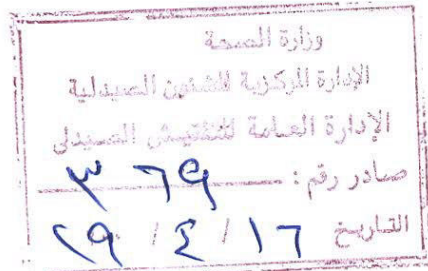 وزارة الصحة
الإدارة المركزية للشئون الصيدلية
الإدارة العامة للتفتيش الصيدلى
صادر رقم : ٣٦٩
التاريخ ١٦ / ٤ / ١٩